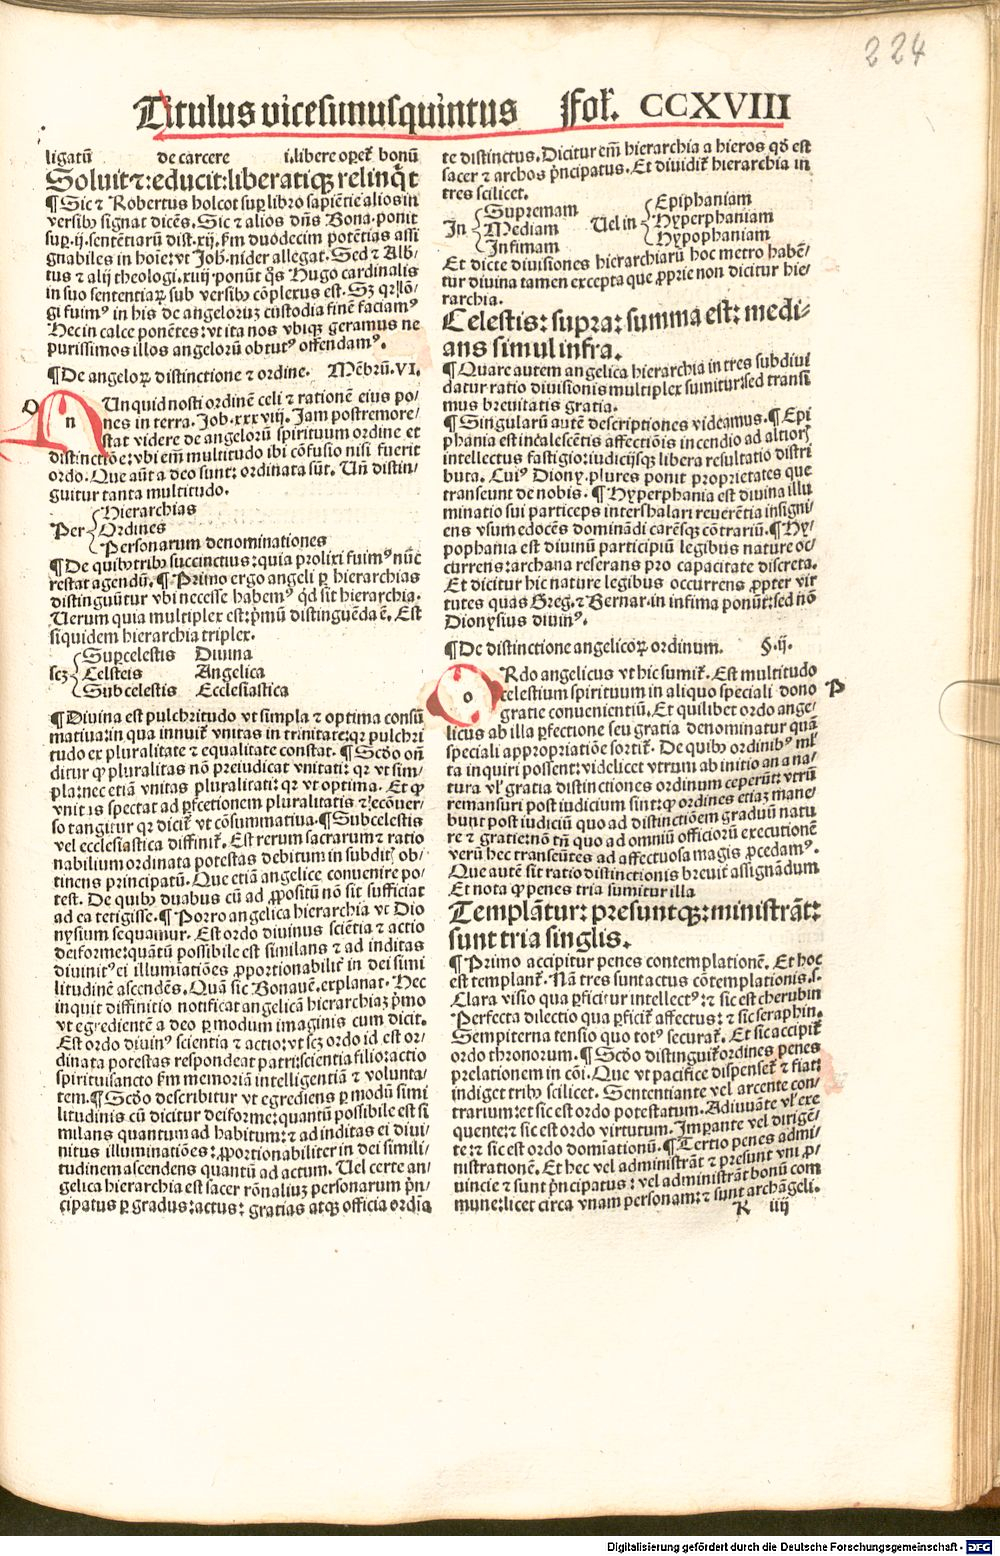 224
Titulus vicesimusquintus Fol. CCXVIII
ligatū de carcere i. libere oꝑet᷑ bonū
Soluit ⁊: educit: liberatiqꝫ relinq̄t
¶ Sic ⁊ Robertus holcot suꝑ libro sapiētie alios in
versibꝰ signat dicēs. Sic ⁊ alios dn̄s Bona. ponit
suꝑ. ij. sentētiarū dist. xij. ẜm duodecim potētias assi
gnabiles in hoīe: vt Joh. nider allegat. Sed ⁊ Alb/
tus ⁊ alij theologi. xiiij ponūt q̄s Hugo cardinalis
in suo sententiaꝝ sub versibꝰ cōplexus est. Sꝫ qꝛ lō/
gi fuimꝰ in his de angeloꝝ custodia finē faciamꝰ
Hec in calce ponētes: vt ita nos vbiqꝫ geramus ne
purissimos illos angelorū obtutꝰ offendamꝰ.
¶ De angeloꝝ distinctione ⁊ ordine. Mēbrū. VI.
n Unquid nosti ordinē celi ⁊ rationē eius po/
nes in terra. Job. xxxviij. Jam postremo re/
stat videre de angelorū spirituum ordine et
distinctōe: vbi em̄ multitudo ibi cōfusio nisi fuerit
ordo. Que aūt a deo sunt: ordinata sūt. Un̄ distin/
guitur tanta multitudo.
Hierarchias
Per Ordines
Personarum denominationes
¶ De quibꝰ tribꝰ succinctius: quia prolixi fuimꝰ nūc
restat agendū. ¶ Primo ergo angeli ꝑ hierarchias
distinguūtur vbi necesse habemꝰ qd̄ sit hierarchia.
Uerum quia multiplex est: pͥmū distinguēda ē. Est
siquidem hierarchia triplex.
Suꝑcelestis Divina
scꝫ Celsteis Angelica
Subcelestis Ecclesiastica
¶ Divina est pulchritudo vt simpla ⁊ optima consū
mativa: in qua innuit᷑ vnitas in trinitate: qꝛ pulchri
tudo ex pluralitate ⁊ equalitate constat. ¶ Scd̓o on̄
ditur ꝙ pluralitas nō preiudicat vnitati: qꝛ vt sim/
pla: nec etiā vnitas pluralitati: qꝛ vt optima. Et ꝙ
vnitas spectat ad ꝑfectionem pluralitatis ⁊ ecōuer/
so tangitur qꝛ dicit᷑ vt cōsummativa. ¶ Subcelestis
vel ecclesiastica diffinit᷑. Est rerum sacrarum ⁊ ratio
nabilium ordinata potestas debitum in subditꝭ ob/
tinens principatū. Que etiā angelice convenire po/
test. De quibꝰ duabus cū ad ꝓpositū nō sit sufficiat
ad ea tetigisse. ¶ Porro angelica hierarchia vt Dio
nysium sequamur. Est ordo divinus sciētia ⁊ actio
deiforme: quātū possibile est similans ⁊ ad inditas
divinitꝰ ei illumiatiōes ꝓportionabilit᷑ in dei simi
litudinē ascendēs. Quā sic Bonauē. explanat. Hec
inquit diffinitio notificat angelicā hierarchiaꝫ pͥmo
vt egredientē a deo ꝑ modum imaginis cum dicit.
Est ordo divinꝰ scientia ⁊ actio: vt scꝫ ordo id est or/
dinata potestas respondeat patri: scientia filio: actio
spirituisancto ẜm memoriā intelligentiā ⁊ volunta/
tem. ¶ Scd̓o describitur vt egrediens ꝑ modū simi
litudinis cū dicitur deiforme: quantū possibile est si
milans quantum ad habitum: ⁊ ad inditas ei divi/
nitus illuminatiōes: ꝓportionabiliter in dei simili/
tudinem ascendens quantū ad actum. Uel certe an/
gelica hierarchia est sacer rōnaliuꝫ personarum pͥn/
cipatus ꝑ gradus: actus: gratias atqꝫ officia ordīa
te distinctus. Dicitur em̄ hierarchia a hieros qd̓ est
sacer ⁊ archos pͥncipatus. Et dividit᷑ hierarchia in
tres scilicet.
Supremam Epiphaniam
In Mediam Uel in Hyperphaniam
Infimam Hypophaniam
Et dicte divisiones hierarchiarū hoc metro habē/
tur divina tamen excepta que ꝓprie non dicitur hie/
rarchia.
Celestis: supra: summa est: medi/
ans simul infra.
¶ Quare autem angelica hierarchia in tres subdivi
datur ratio divisionis multiplex sumitur: sed transi
mus brevitatis gratia.
¶ Singularū autē descriptiones videamus. ¶ Epi
phania est incalescētis affectiōis incendio ad altiorꝭ
intellectus fastigio: iudicijsqꝫ libera resultatio distri
buta. Cuiꝰ Diony. plures ponit proprietates que
transeunt de nobis. ¶ Hyperphania est divina illu
minatio sui particeps intershalari reverētia insigni
ens vsum edocēs dominādi carēsqꝫ cōtrariū. ¶ Hy/
pophania est divinū participiū legibus nature oc/
currens: archana reserans pro capacitate discreta.
Et dicitur hic nature legibus occurrens ꝓpter vir
tutes quas Greg. ⁊ Bernar. in infima ponūt: sed nō
Dionysius divinꝰ.
¶ De distinctione angelicoꝝ ordinum. §. ij.
o Rdo angelicus vt hic sumit᷑. Est multitudo
celestium spirituum in aliquo speciali dono
gratie convenientiū. Et quilibet ordo ange/
licus ab illa ꝑfectione seu gratia denominatur quā
speciali appropriatiōe sortit᷑. De quibꝰ ordinibꝰ ml̓
ta inquiri possent: videlicet vtrum ab initio an a na/
tura vl̓ gratia distinctiones ordinum ceperūt: vtrū
remansuri post iudicium sint: ꝙ ordines etiaꝫ mane/
bunt post iudiciū quo ad distinctiōem graduū natu
re ⁊ gratie: nō tn̄ quo ad omniū officiorū executionē
verū hec transeūtes ad affectuosa magis ꝓcedamꝰ.
Que autē sit ratio distinctionis breuit᷑ assignādum
Et nota ꝙ penes tria sumitur illa
Templātur: presuntqꝫ: ministrāt:
sunt tria singlis.
¶ Primo accipitur penes contemplationē. Et hoc
est templant᷑. Nā tres sunt actus cōtemplationis. s.
Clara visio qua ꝑficitur intellectꝰ: ⁊ sic est cherubin
Perfecta dilectio qua ꝑficit᷑ affectus: ⁊ sic seraphin.
Sempiterna tensio quo totꝰ securat᷑. Et sic accipit᷑
ordo thronorum. ¶ Scd̓o distinguit᷑ ordines penes
prelationem in cōi. Que vt pacifice dispenset᷑ ⁊ fiat:
indiget tribꝰ scilicet. Sententiante vel arcente con/
trarium: et sic est ordo potestatum. Adiuvāte vl̓ exe
quente: ⁊ sic est ordo virtutum. Imꝑante vel dirigē/
te: ⁊ sic est ordo domīationū. ¶ Tertio penes admi/
nistrationē. Et hec vel administrāt ⁊ presunt vni ꝓ/
vincie ⁊ sunt pͥncipatus: vel administrāt bonū com
mune: licet circa vnam personam: ⁊ sunt archāgeli.
R iiij
Digitalisierung gefördert durch die Deutsche Forschungsgemeinschaft - DFG